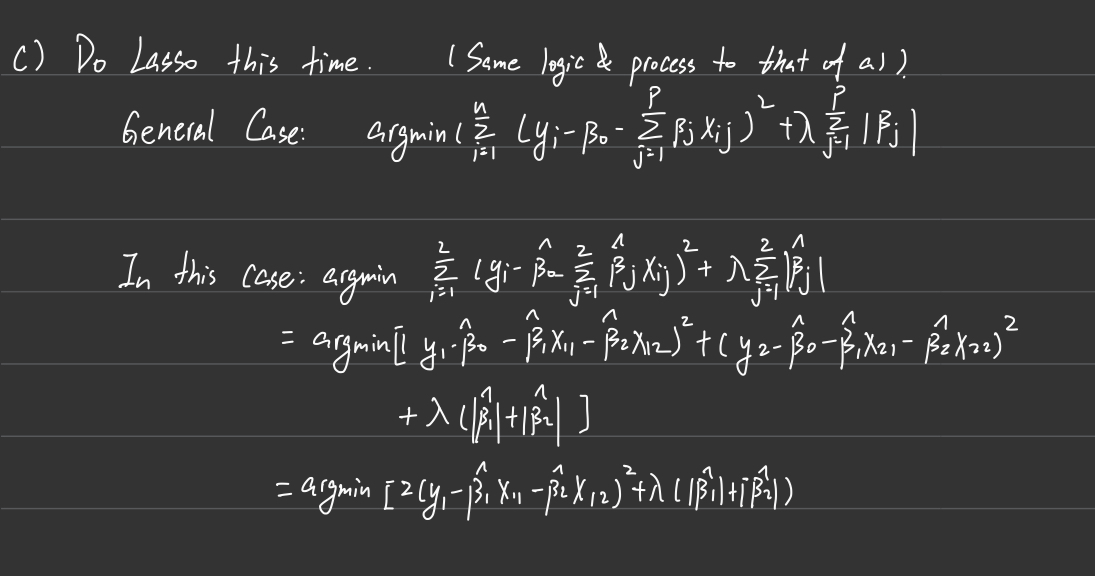 c) Do Lasso this time. (Same logic & process to that of a))
General Case: argmin( Σ_{i=1}^{n} (yi - β0 - Σ_{j=1}^{P} βj Xij)² + λ Σ_{j=1}^{P} |βj|
In this case: argmin Σ_{i=1}^{2} (yi - β̂0 - Σ_{j=1}^{2} β̂j Xij)² + λ Σ_{j=1}^{2} |β̂j|
= argmin[( y1 - β̂0 - β̂1X11 - β̂2X12)² + ( y2 - β̂0 - β̂1X21 - β̂2X22)²
+ λ (|β̂1| + |β̂2| ]
= argmin [2(y1 - β̂1 X11 - β̂2 X12)² + λ (|β̂1| + |β̂2|)